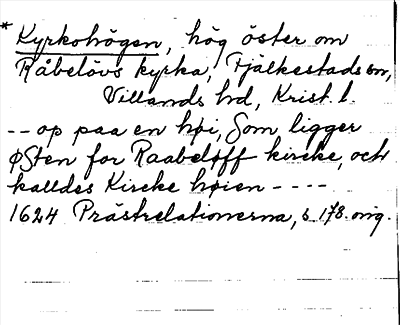 * Kyrkohögen, hög öster om
Råbelövs kyrka, Fjälkestads sn,
Villands hd, Krist. l.
-- op paa en høi, Som ligger
østen for Raabeløff kircke, och
kalldes Kircke høien ----
1624 Prästrelationerna, s. 178. orig.